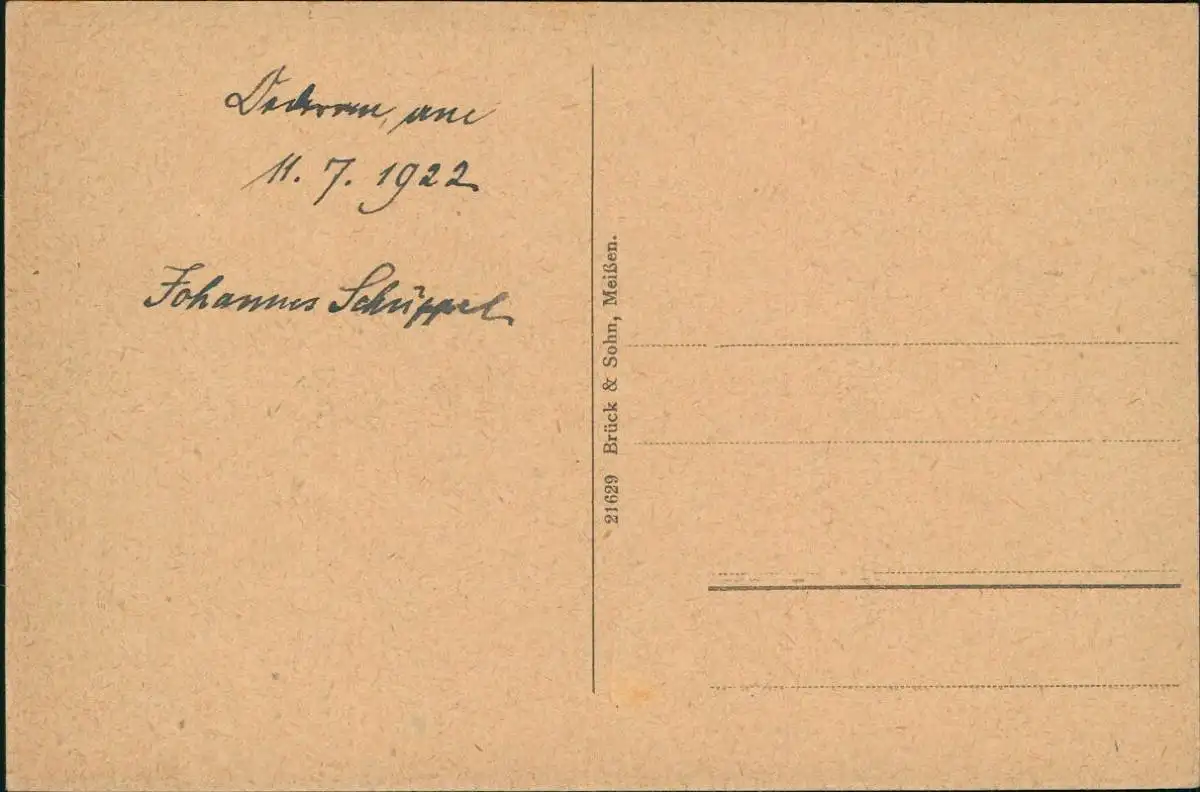 Oederan, am
11. 7. 1922
Johannes Schüppel
21629 Brück & Sohn, Meißen.